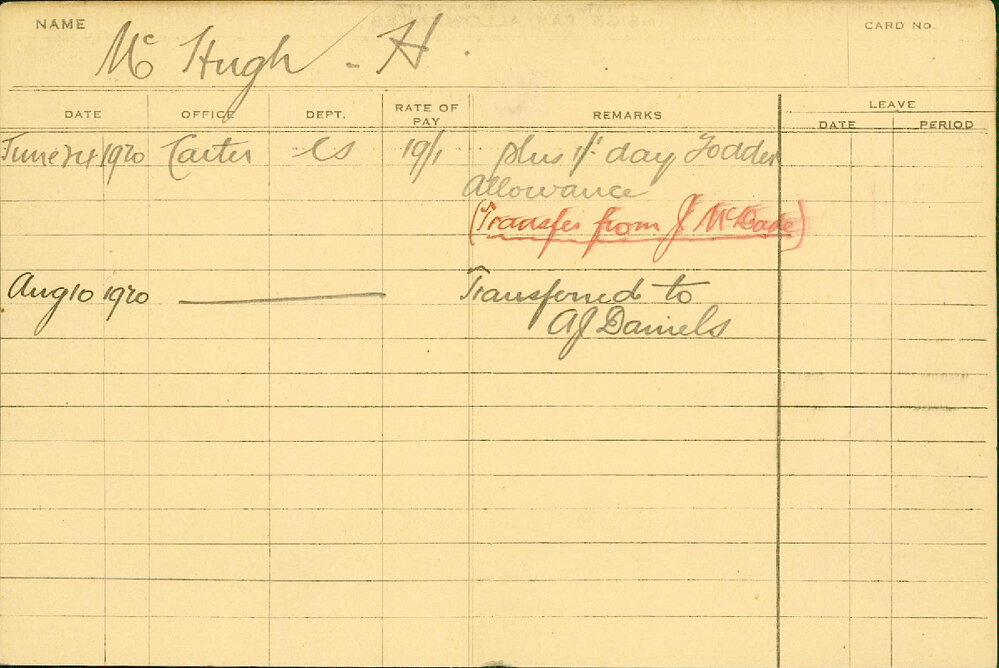 NAME
Mc Hugh - H.
CARD NO.
DATE OFFICE DEPT. RATE OF PAY REMARKS LEAVE
DATE PERIOD
June 24 1920 Carter CS 19/1 plus 1/- day Fodder
Allowance
(Transfer from J McDade)
Aug 10 1920 Transferred to
AJ Daniels